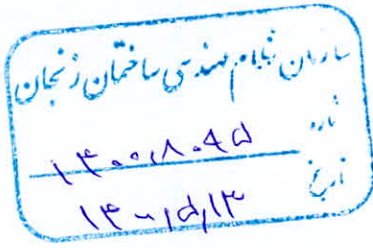 سازمان نظام مهندسی ساختمان زنجان
شماره ۱۴۰۰،۸۰۹۵
تاریخ ۱۴۰۰،۵،۱۳